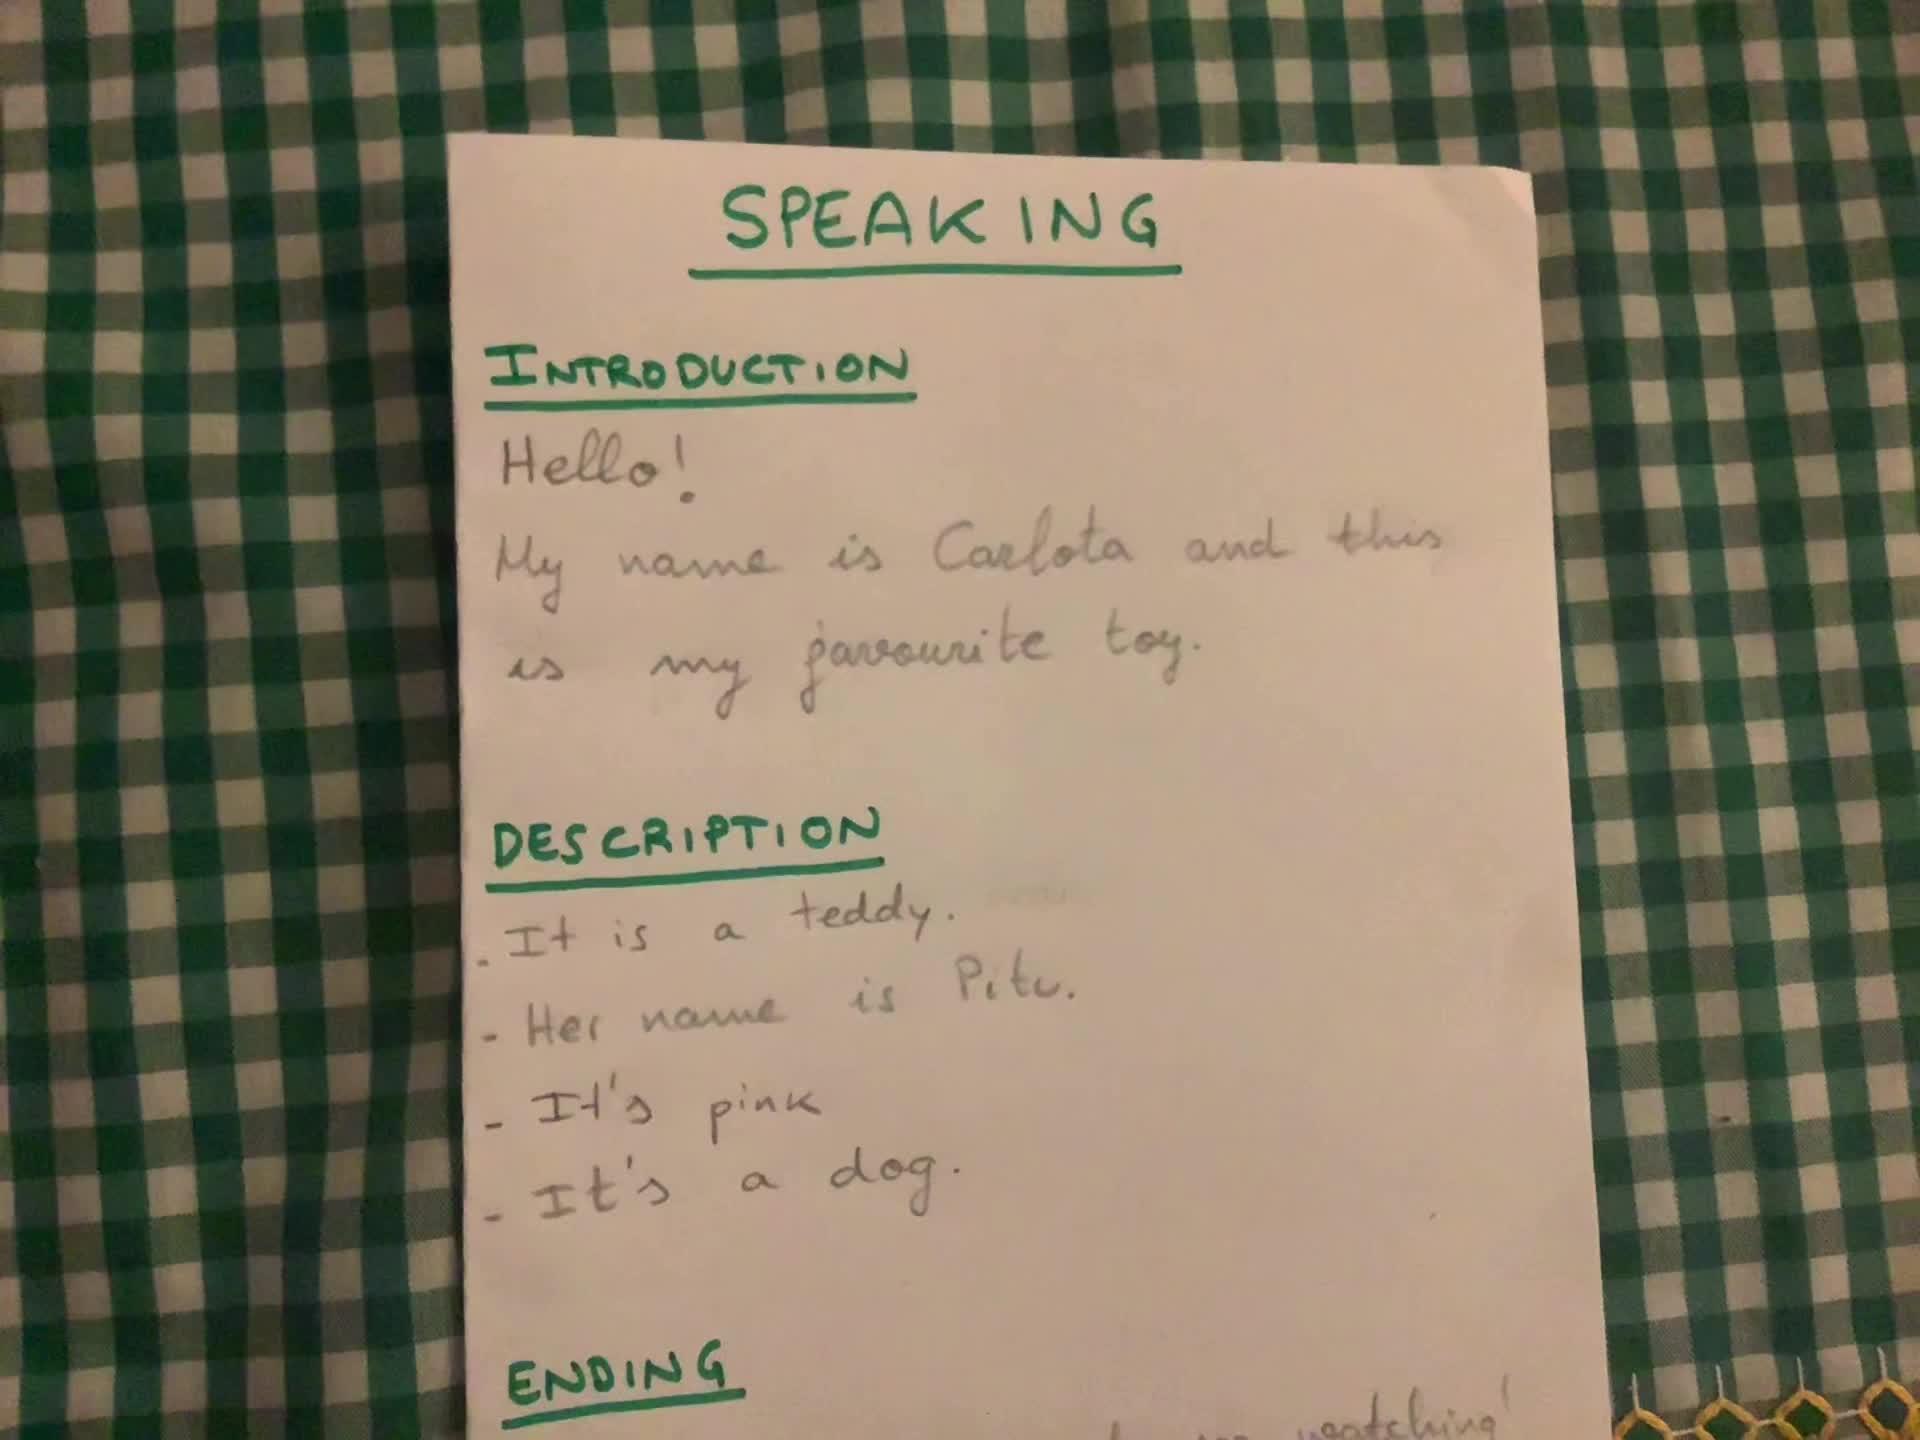 SPEAKING
INTRODUCTION
Hello!
My name is Carlota and this
is my favourite toy.
DESCRIPTION
- It is a teddy.
- Her name is Pitu.
- It's pink
- It's a dog.
ENDING
watching!